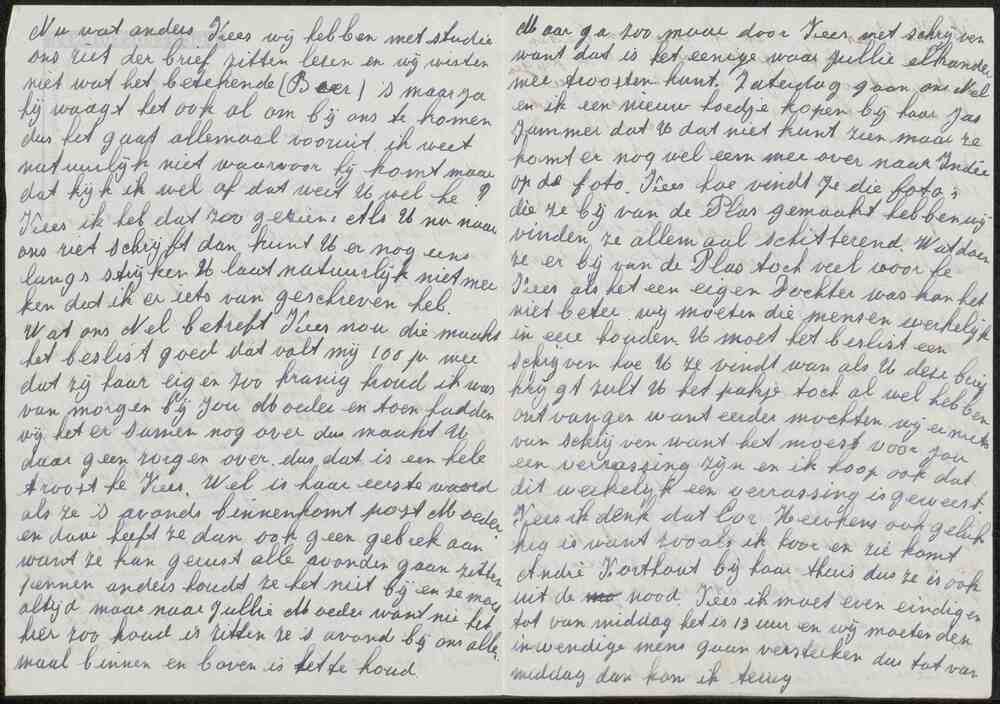 Nu wat anders Kees wij hebben met studie
ons riet der brief zitten lezen en wij wisten
niet wat het betekende (Beer) 's maar ja
hij waagt het ook al om bij ons te komen
dus het gaat allemaal vooruit ik weet
natuurlijk niet waarvoor hij komt maar
dat kijk ik wel af dat weet U wel he?
Kees ik heb dat zoo gezien. Als U nu naar
ons riet schrijft dan kunt U er nog eens
langs strijken U laat natuurlijk niet mer
ken dat ik er iets van geschreven heb.
Wat ons Nel betreft Kees nou die maakt
het beslist goed dat valt mij 100 pr mee
dat zij haar eigen zoo kranig houd ik was
van morgen bij Jou Moeder en toen hadden
wij het er samen nog over dus maakt U
daar geen zorgen over. dus dat is een hele
troost he Kees. Wel is haar eerste woord
als ze 's avonds binnenkomt post Moeder
en daar heeft ze dan ook geen gebrek aan
want ze kan gerust alle avonden gaan zitten
pennen anders houdt ze het niet bij en ze mag
altijd maar naar Jullie Moeder want nu het
hier zoo koud is zitten ze 's avond bij ons alle
maal binnen en boven is het te koud
Maar ga zoo maar door Kees met schrijven
want dat is het eenige waar Jullie elkander
mee troosten kunt. Zaterdag gaan ons Nel
en ik een nieuw hoedje kopen bij haar Jas
Jammer dat U dat niet kunt zien maar ze
komt er nog wel eem mee over naar Indië
op de foto. Kees hoe vindt Je die foto's
die ze bij van de Plas gemaakt hebben wij
vinden ze allemaal schitterend. Wat doen
ze er bij van de Plas toch veel voor he
Kees als het een eigen Dochter was kan het
niet beter. wij moeten die mensen werkelijk
in eere houden. U moet het beslist een
schrijven hoe U ze vindt wan als U deze brief
krijgt zult U het pakje toch al wel hebben
ontvangen want eerder mochten wij er niets
van schrijven want het moest voor jou
een verrassing zijn en ik hoop ook dat
dit werkelijk een verrassing is geweest.
Kees ik denk dat Cor Heerkens ook geluk
kig is want zooals ik hoor en zie komt
André Korthout bij haar thuis dus ze is ook
uit de nood. Kees ik moet even eindigen
tot van middag het is 12 uur en wij moeten den
inwendige mens gaan versterken dus tot van
middag dan kom ik terug